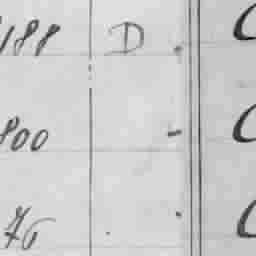 188 D C
800 - C
76 C